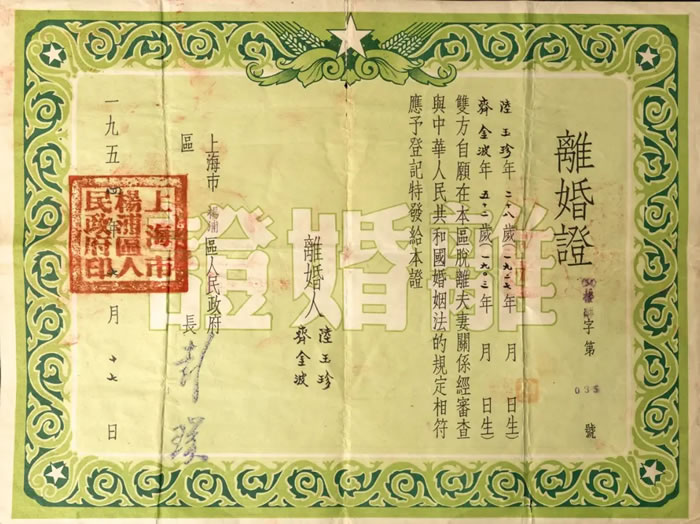 離婚證
楊字第 號
陸玉珍年二八歲(一九二七年 月 日生)
齊金波年五二歲(一九〇三年 月 日生)
雙方自願在本區脫離夫妻關係經審查
與中華人民共和國婚姻法的規定相符
應予登記特發給本證
離婚人 陸玉珍
齊金波
上海市楊浦區人民政府
區 長
一九五四年 月十七日
上海市楊浦區人民政府印
離婚證